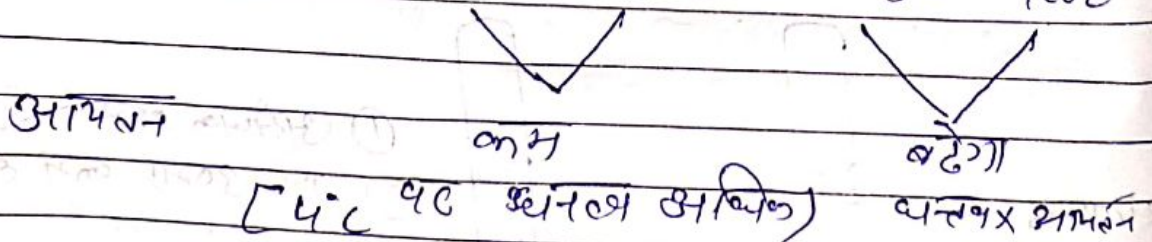 आयतन कम बढेगा
[4°C पर घनत्व अधिक) घनत्व x आयतन